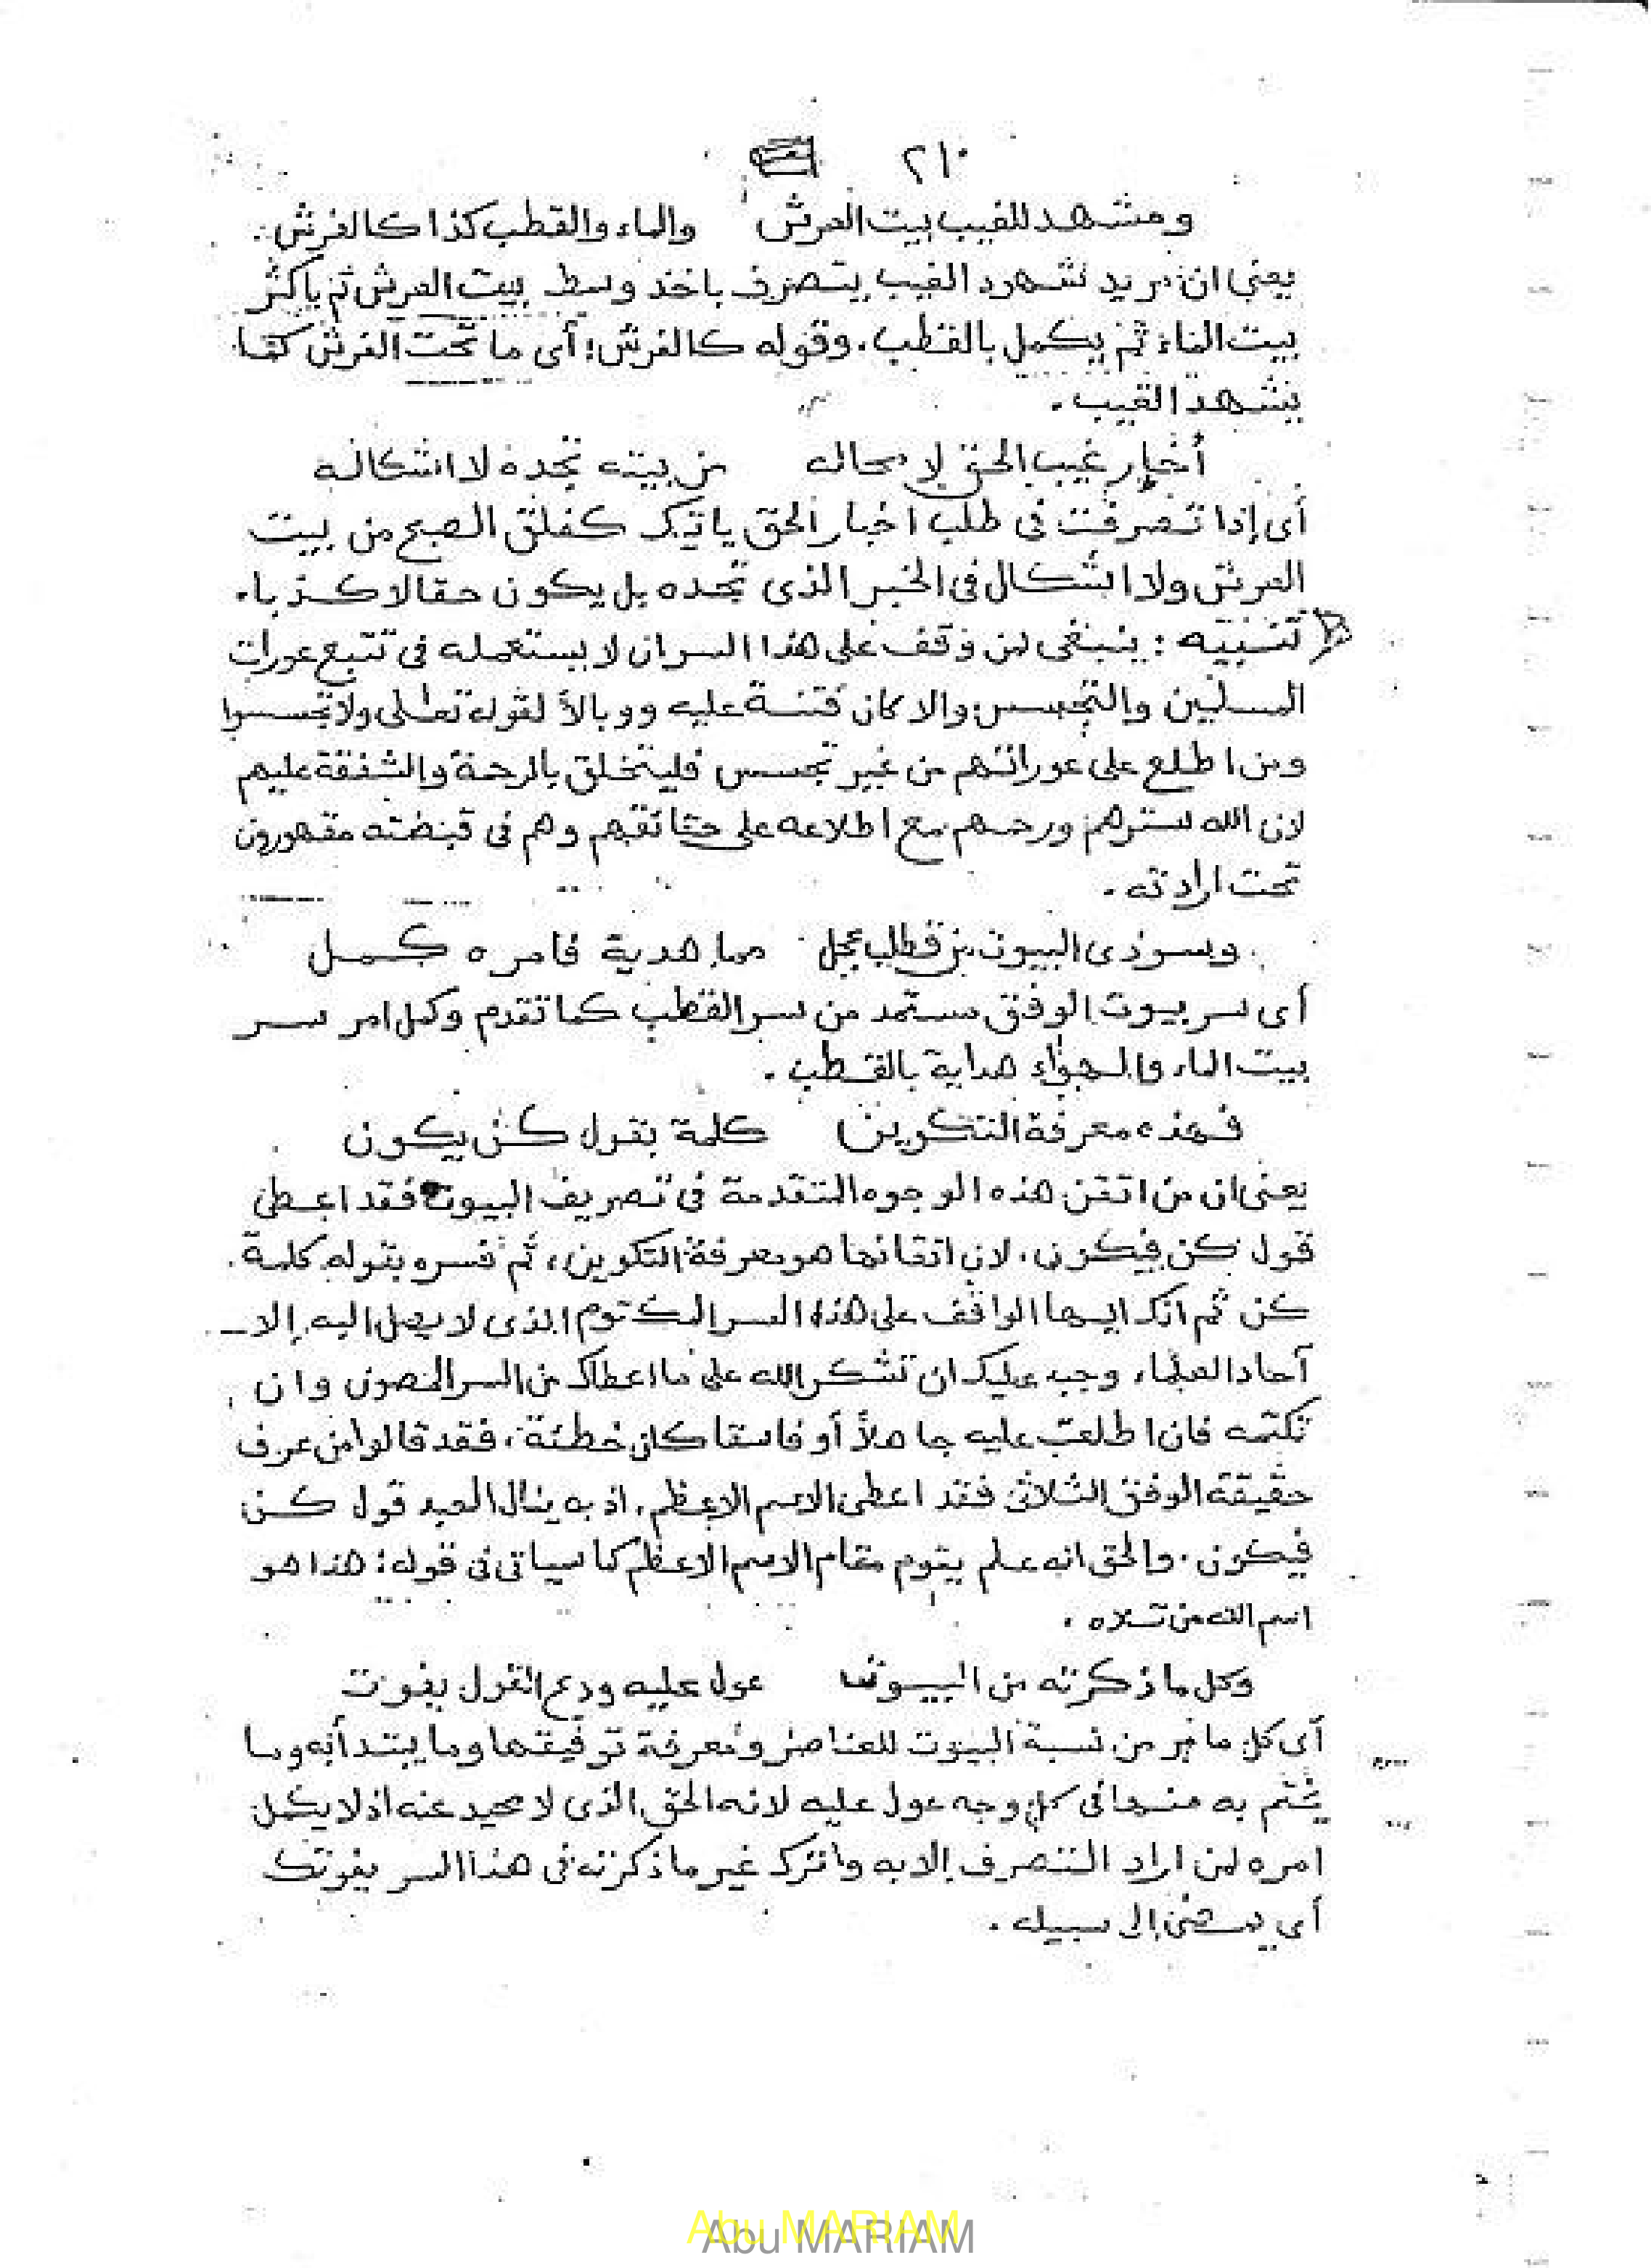 ٢١٠
ومشهد للغيب بيت العرش والماء والقطب كذا كالفرش.
يعني ان مريد شهود الغيب يتصرف باخذ وسط بيت العرش ثم باكثر
بيت الماء ثم يكمل بالقطب. وقوله كالفرش: أى ما تحت الفرش كما
يشهد الغيب.
أخبار غيب الحق لا محاله من بيته تجده لا اشكاله
أى إذا تصرفت فى طلب اخبار الحق ياتيك كفلق الصبح من بيت
العرش ولا اشكال فى الخبر الذى تجده بل يكون حقا لا كذبا.
تنبيه: ينبغى لمن وقف على هذا السر ان لا يستعمله فى تتبع عورات
المسلمين والتجسس والا كان فتنة عليه ووبالأ لقوله تعالى ولا تجسسوا
ومن اطلع على عوراتهم من غير تجسس فليتخلق بالرحمة والشفقة عليهم
لان الله سترهم ورحمهم مع اطلاعه على حقائقهم وهم فى قبضته مقهورون
تحت ارادته.
وسر ذى البيوت من قطب عجل مما هدية فامره كمل
أى سر بيوت الوفق مستمد من سر القطب كما تقدم وكمل امر سر
بيت الماء والهواء هداية بالقطب.
فهذه معرفة التكوين كلمة بقول كن يكون
يعنى ان من اتقن هذه الوجوه المتقدمة فى تصريف البيوت فقد اعطى
قول كن فيكون. لان اتقانها هو معرفة التكوين، ثم فسره بقوله كلمة.
كن ثم انك ايها الواقف على هذا السر المكتوم الذى لا يصل اليه إلا
آحاد العلماء وجب عليك ان تشكر الله على ما اعطاك من السر المصون وان
تكتمه فان اطلعت عليه جاهلاً أو فاسقا كان خطئة، فقد قالوا من عرف
حقيقة الوفق الثلاثى فقد اعطى الاسم الاعظم. اذ به ينال العبد قول كن
فيكون. والحق انه علم يقوم مقام الاسم الاعظم كما سياتى فى قوله: هذا هو
اسم الله من تلاه.
وكل ما ذكرته من البيوت عول عليه ودع القول يفوت
أى كل ما مر من نسبة البيوت للعناصر ومعرفة توفيقها وما يبتدأ به وما
يتم به منها فى كل وجه عول عليه لانه الحق الذى لا محيد عنه اذ لا يكمل
امره لمن اراد التصرف إلا به واترك غير ما ذكرته فى هذا السر يفوتك
أى يمضى إلى سبيله.
Abu MARIAM
Abu MARIAM